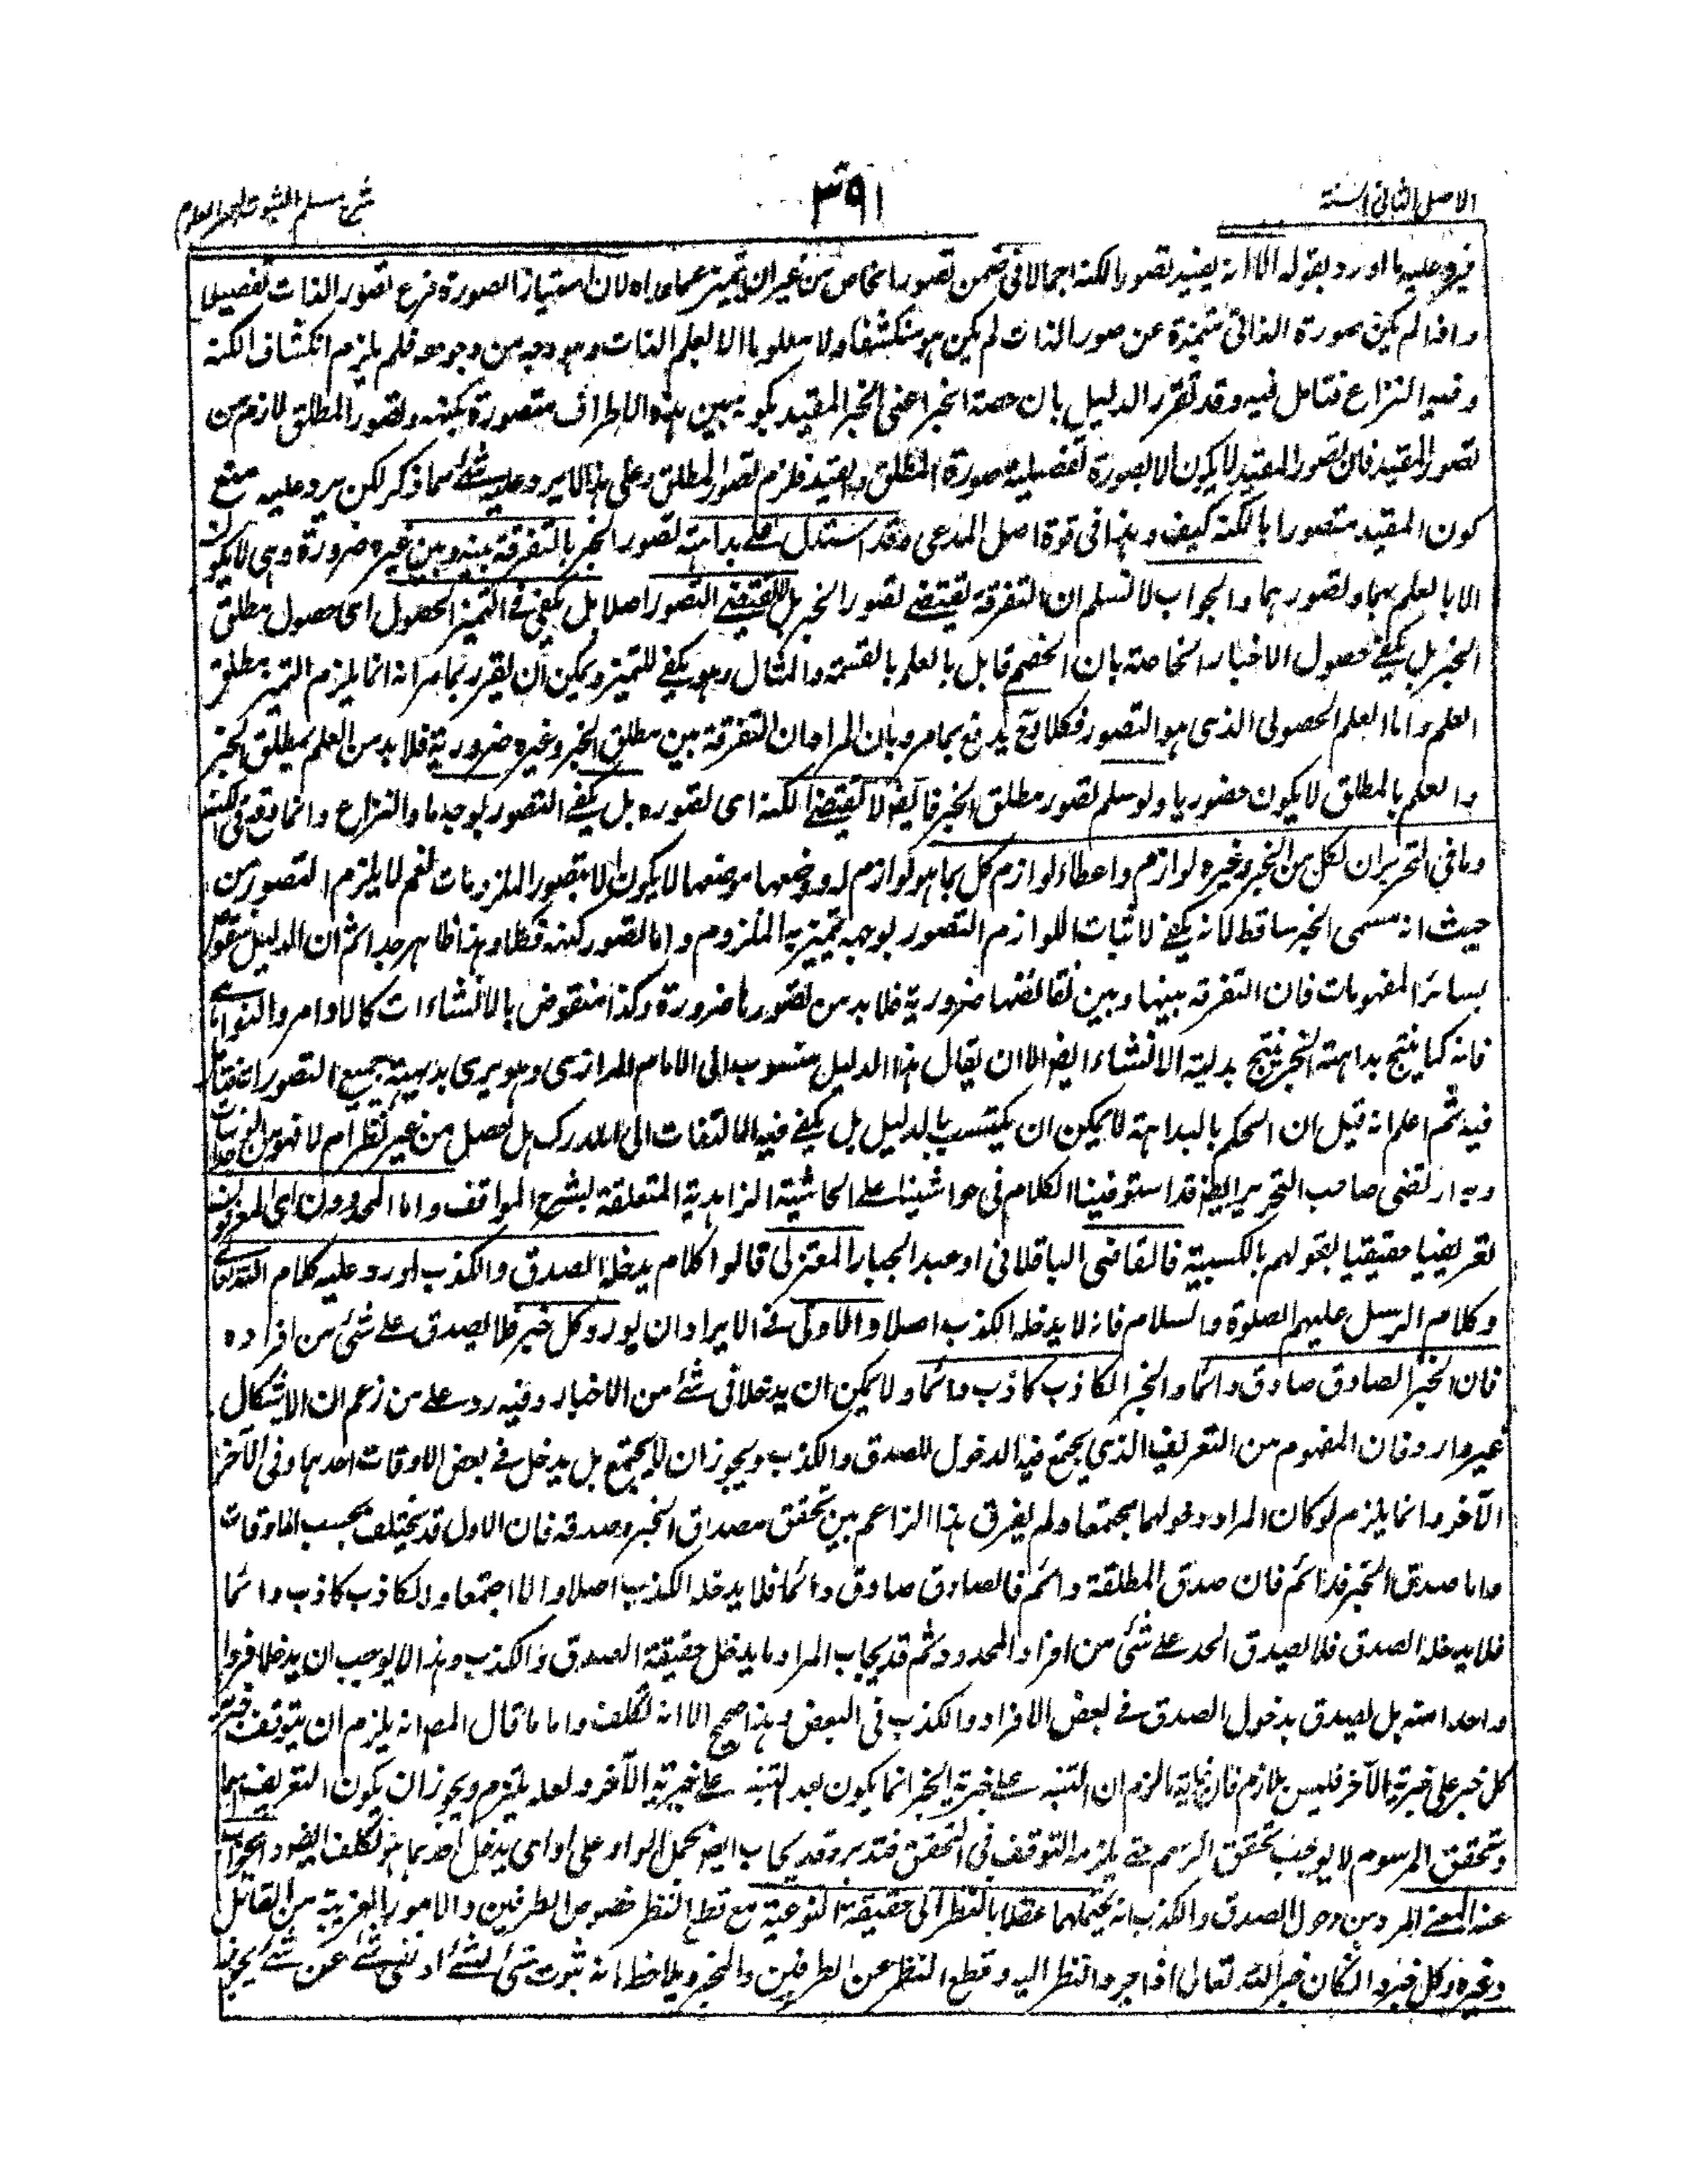 الاصل الثانى السنة
٣٩١
شرح مسلم الثبوت لبحر العلوم
فيرد عليه ما اورد بقوله الا انه يفيد تصور الكنه اجمالا فى ضمن تصور الخاص من غير ان يتميز عما عداه لان امتياز الصورة فرع تصور الذات تفصيلا
واذا لم يكن صورة الذاتى متميزة عن صور الذات لم يكن هو منكشفا ولا معلوما الا بعلم الذات وهو وجه من وجوهه فلم يلزم انكشاف الكنه
وفيه النزاع فتامل فيه وقد تقرر الدليل بان حصة الخبر اعنى الخبر المقيد بكونه بين هذه الاطراف متصورة بكنهه وتصور المطلق لازم من
تصور المقيد فان تصور المقيد لا يكون الا بصورة تفصيلية صورة المطلق والقيد فلزم تصور المطلق وعلى هذا لا يرد عليه شئ مما ذكر لكن يرد عليه منع
كون المقيد متصورا بالكنه كيف وهذا فى قوة اصل المدعى وقد استدل على بداهة تصور الخبر بالتفرقة بينه وبين غيره ضرورة وهى لا يكون
الا بالعلم بهما وتصورهما والجواب لا نسلم ان التفرقة تقتضى تصور الخبر بل لا تقتضى التصور اصلا بل يكفى فى التميز الحصول اى حصول مطلق
الخبر بل يكفى حصول الاخبار الخاصة بان الخصم قابل بالعلم بالقسمة والمثال وهو يكفى للتميز ويمكن ان يقرر بما مر انه انما يلزم التميز مطلق
العلم واما العلم الحصولى الذى هو التصور فكلا وح يدفع بما مر وبان المراد ان التفرقة بين مطلق الخبر وغيره ضرورية فلا بد من العلم بمطلق الخبر
والعلم بالمطلق لا يكون حضوريا ولو سلم تصور مطلق الخبر فايضا لا يقتضى الكنه اى تصوره بل يكفى التصور بوجه ما والنزاع وانما وقع فى الكنه
وما فى التحرير ان لكل من الخبر وغيره لوازم واعطاء لوازم كل بما هو لوازم له ووضعها موضعها لا يكون الا بتصور الملزومات نعم لا يلزم التصور من
حيث انه مسمى الخبر ساقط لانه يكفى لاثبات اللوازم التصور بوجه تميز به الملزوم واما تصور كنهه فكلا وهذا ظاهر جدا ثم ان الدليل منقوض
بسائر المفهومات فان التفرقة بينها وبين نقائضها ضرورية فلا بد من تصورها ضرورة وكذا منقوض بالانشاءات كالاوامر والنواهى
فانه كما ينتج بداهة الخبر ينتج بداهة الانشاء ايضا الا ان يقال هذا الدليل منسوب الى الامام الرازى وهو يرى بديهية جميع التصورات فتامل
فيه ثم اعلم انه قيل ان الحكم بالبداهة لا يمكن ان يكتسب بالدليل بل يكفى فيه الالتفات الى المدرك هل حصل من غير نظر ام لا فهو من الوجدانيات
وبه ارتضى صاحب التحرير ايضا قد استوفينا الكلام فى حواشينا على الحاشية الزاهدية المتعلقة بشرح المواقف واما المحدودون اى المعرفون
تعريفا حقيقيا بقولهم بالكسبية فالقاضى الباقلانى او عبد الجبار المعتزلى قالوا كلام يدخله الصدق والكذب اورد عليه كلام الله تعالى
وكلام الرسل عليهم الصلوة والسلام فانه لا يدخله الكذب اصلا والاولى فى الايراد ان يورد كل خبر فلا يصدق على شئ من افراده
فان الخبر الصادق صادق دائما والخبر الكاذب كاذب دائما ولا يمكن ان يدخلا فى شئ من الاخبار وفيه رد على من زعم ان الاشكال
غير وارد فان المفهوم من التعريف الذى يجتمع فيه الدخول للصدق والكذب ويجوز ان لا يجتمع بل يدخل فى بعض الاوقات احدهما وفى الآخر
الآخر وانما يلزم لو كان المراد دخولهما مجتمعا ولم يفرق هذا الزاعم بين تحقق مصداق الخبر وصدقه فان الاول قد يختلف بحسب الاوقات
واما صدق الخبر فدائم فان صدق المطلقة دائم فالصادق صادق دائما فلا يدخله الكذب اصلا والا اجتمعا والكاذب كاذب دائما
فلا يدخله الصدق فلا يصدق الحد على شئ من افراد المحدود ثم قد يجاب المراد ما يدخل حقيقة الصدق والكذب وهذا لا يوجب ان يدخلا فردا
واحدا منه بل يصدق بدخول الصدق فى بعض الافراد والكذب فى البعض وهذا صحيح الا انه تكلف واما ما قال المصـ انه يلزم ان يتوقف خبرية
كل خبر على خبرية الآخر فليس بلازم فان غاية ما لزم ان التنبه على خبرية الخبر انما يكون بعد التنبه على خبرية الآخر ولعله يلتزم ويجوز ان يكون التعريف رسما
وتحقق المرسوم لا يوجب تحقق الرسم حتى يلزم التوقف فى التحقق فتدبر وقد يجاب ايضا بحمل الواو على او اى يدخل احدهما هو تكلف ايضا والجواب
عند المصنف المراد من دخول الصدق والكذب انه يحتملهما عقلا بالنظر الى حقيقة النوعية مع قطع النظر خصوص الطرفين والامور الغريبة من القائل
وغيره وكل خبر وان كان خبر الله تعالى اذا جرد النظر اليه وقطع النظر عن الطرفين والمخبر ويلاحظ انه ثبوت شئ لشئ او نفى شئ عن شئ يجوز